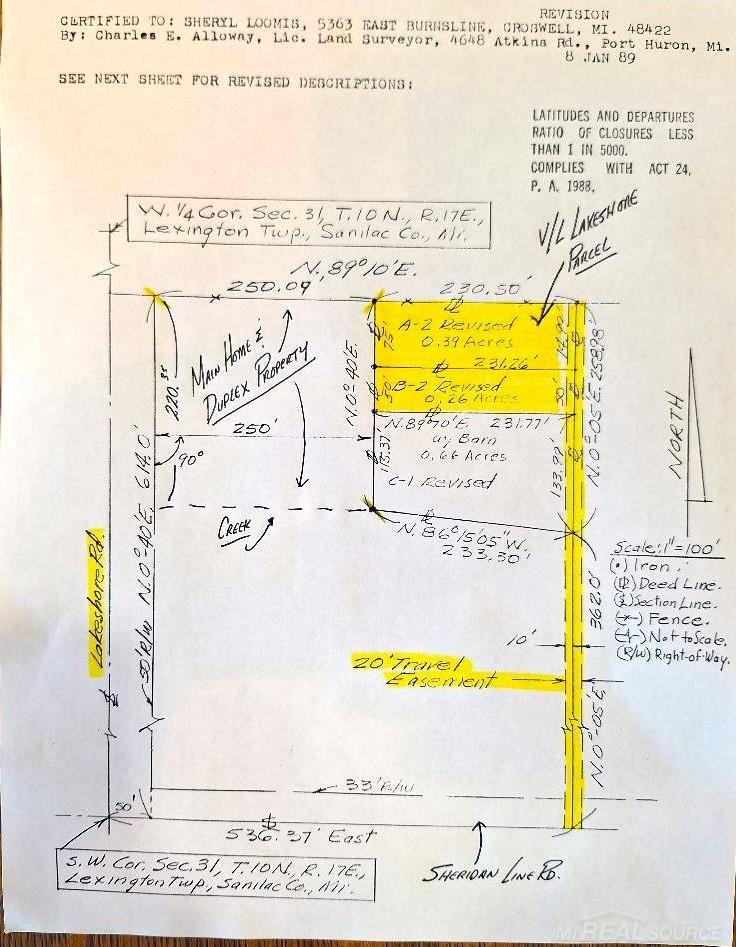 REVISION
CERTIFIED TO: SHERYL LOOMIS, 5363 EAST BURNSLINE, CROSWELL, MI. 48422
By: Charles E. Alloway, Lic. Land Surveyor, 4648 Atkins Rd., Port Huron, Mi.
8 JAN 89
SEE NEXT SHEET FOR REVISED DESCRIPTIONS:
LATITUDES AND DEPARTURES
RATIO OF CLOSURES LESS
THAN 1 IN 5000.
COMPLIES WITH ACT 24,
P. A. 1988.
W. 1/4 Cor. Sec. 31, T.10N., R.17E.,
Lexington Twp., Sanilac Co., Mi.
V/L LAKESHORE
PARCEL
N. 89°10'E.
250.09'
230.50'
A-2 Revised
0.39 Acres
75'
231.26'
B-2 Revised
0.26 Acres
50'
50'
258.98'
N.0°-05'E.
MAIN HOME &
DUPLEX PROPERTY
N.0°-40'E.
N.89°10'E. 231.77'
w/ Barn
0.66 Acres
C-1 Revised
133.99'
250'
90°
CREEK
N. 86°15'05"W.
233.30'
NORTH
Lakeshore Rd.
50' R/W
N.0°-40'E. 614.0'
Scale: 1"=100'
(•) Iron.
Deed Line.
Section Line.
(-x-) Fence.
Not to Scale.
(R/W) Right-of-Way.
362.0'
10'
20' Travel
Easement
N.0°-05'E.
33' R/W
50'
536.37' East
SHERIDAN LINE RD.
S.W. Cor. Sec. 31, T.10N., R.17E.,
Lexington Twp., Sanilac Co., Mi.
MiREALSOURCE